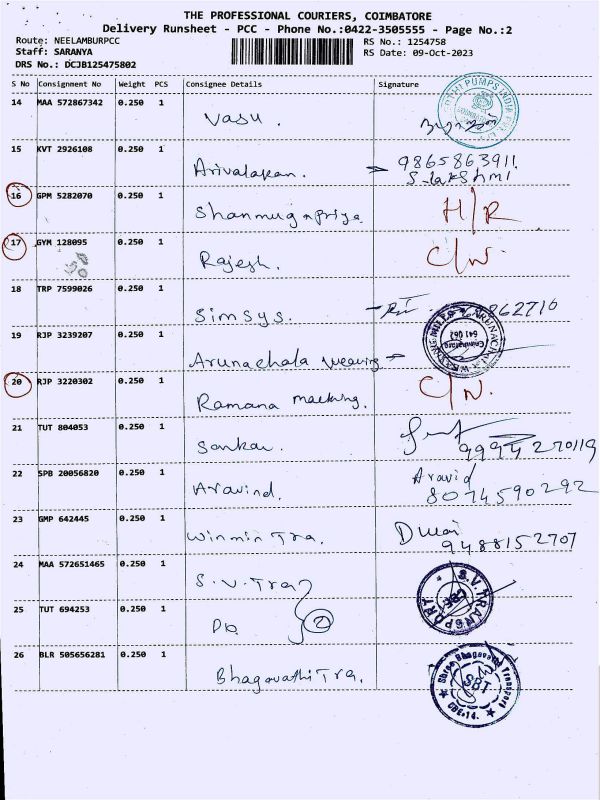 THE PROFESSIONAL COURIERS, COIMBATORE
Delivery Runsheet - PCC - Phone No.:0422-3505555 - Page No.:2
Route: NEELAMBURPCC RS No.: 1254758
Staff: SARANYA RS Date: 09-Oct-2023
DRS No.: DCJB125475802
S No Consignment No Weight PCS Consignee Details Signature
14 MAA 572867342 0.250 1 Vasu.
15 KVT 2926108 0.250 1 Arivalakan. 9865863911
S. lakshmi
16 GPM 5282070 0.250 1 Shanmugapriya H/R
17 GYM 128095 0.250 1 Rajesh. C/N.
18 TRP 7599026 0.250 1 Simsys. 862710
19 RJP 3239207 0.250 1 Arunachala weaving
20 RJP 3220302 0.250 1 Ramana C/N.
21 TUT 804053 0.250 1 Sankar. 9994270119
22 SPB 20056820 0.250 1 Aravind. Aravid
8074590292
23 GMP 642445 0.250 1 Winmin Tra. 9488152707
24 MAA 572651465 0.250 1 S.V. Tra S.V. TRANSPORT
25 TUT 694253 0.250 1 Do 2
26 BLR 505656281 0.250 1 Bhagavathi Tra. Shree Bhagavathi Transport
SBT
CBE-14.